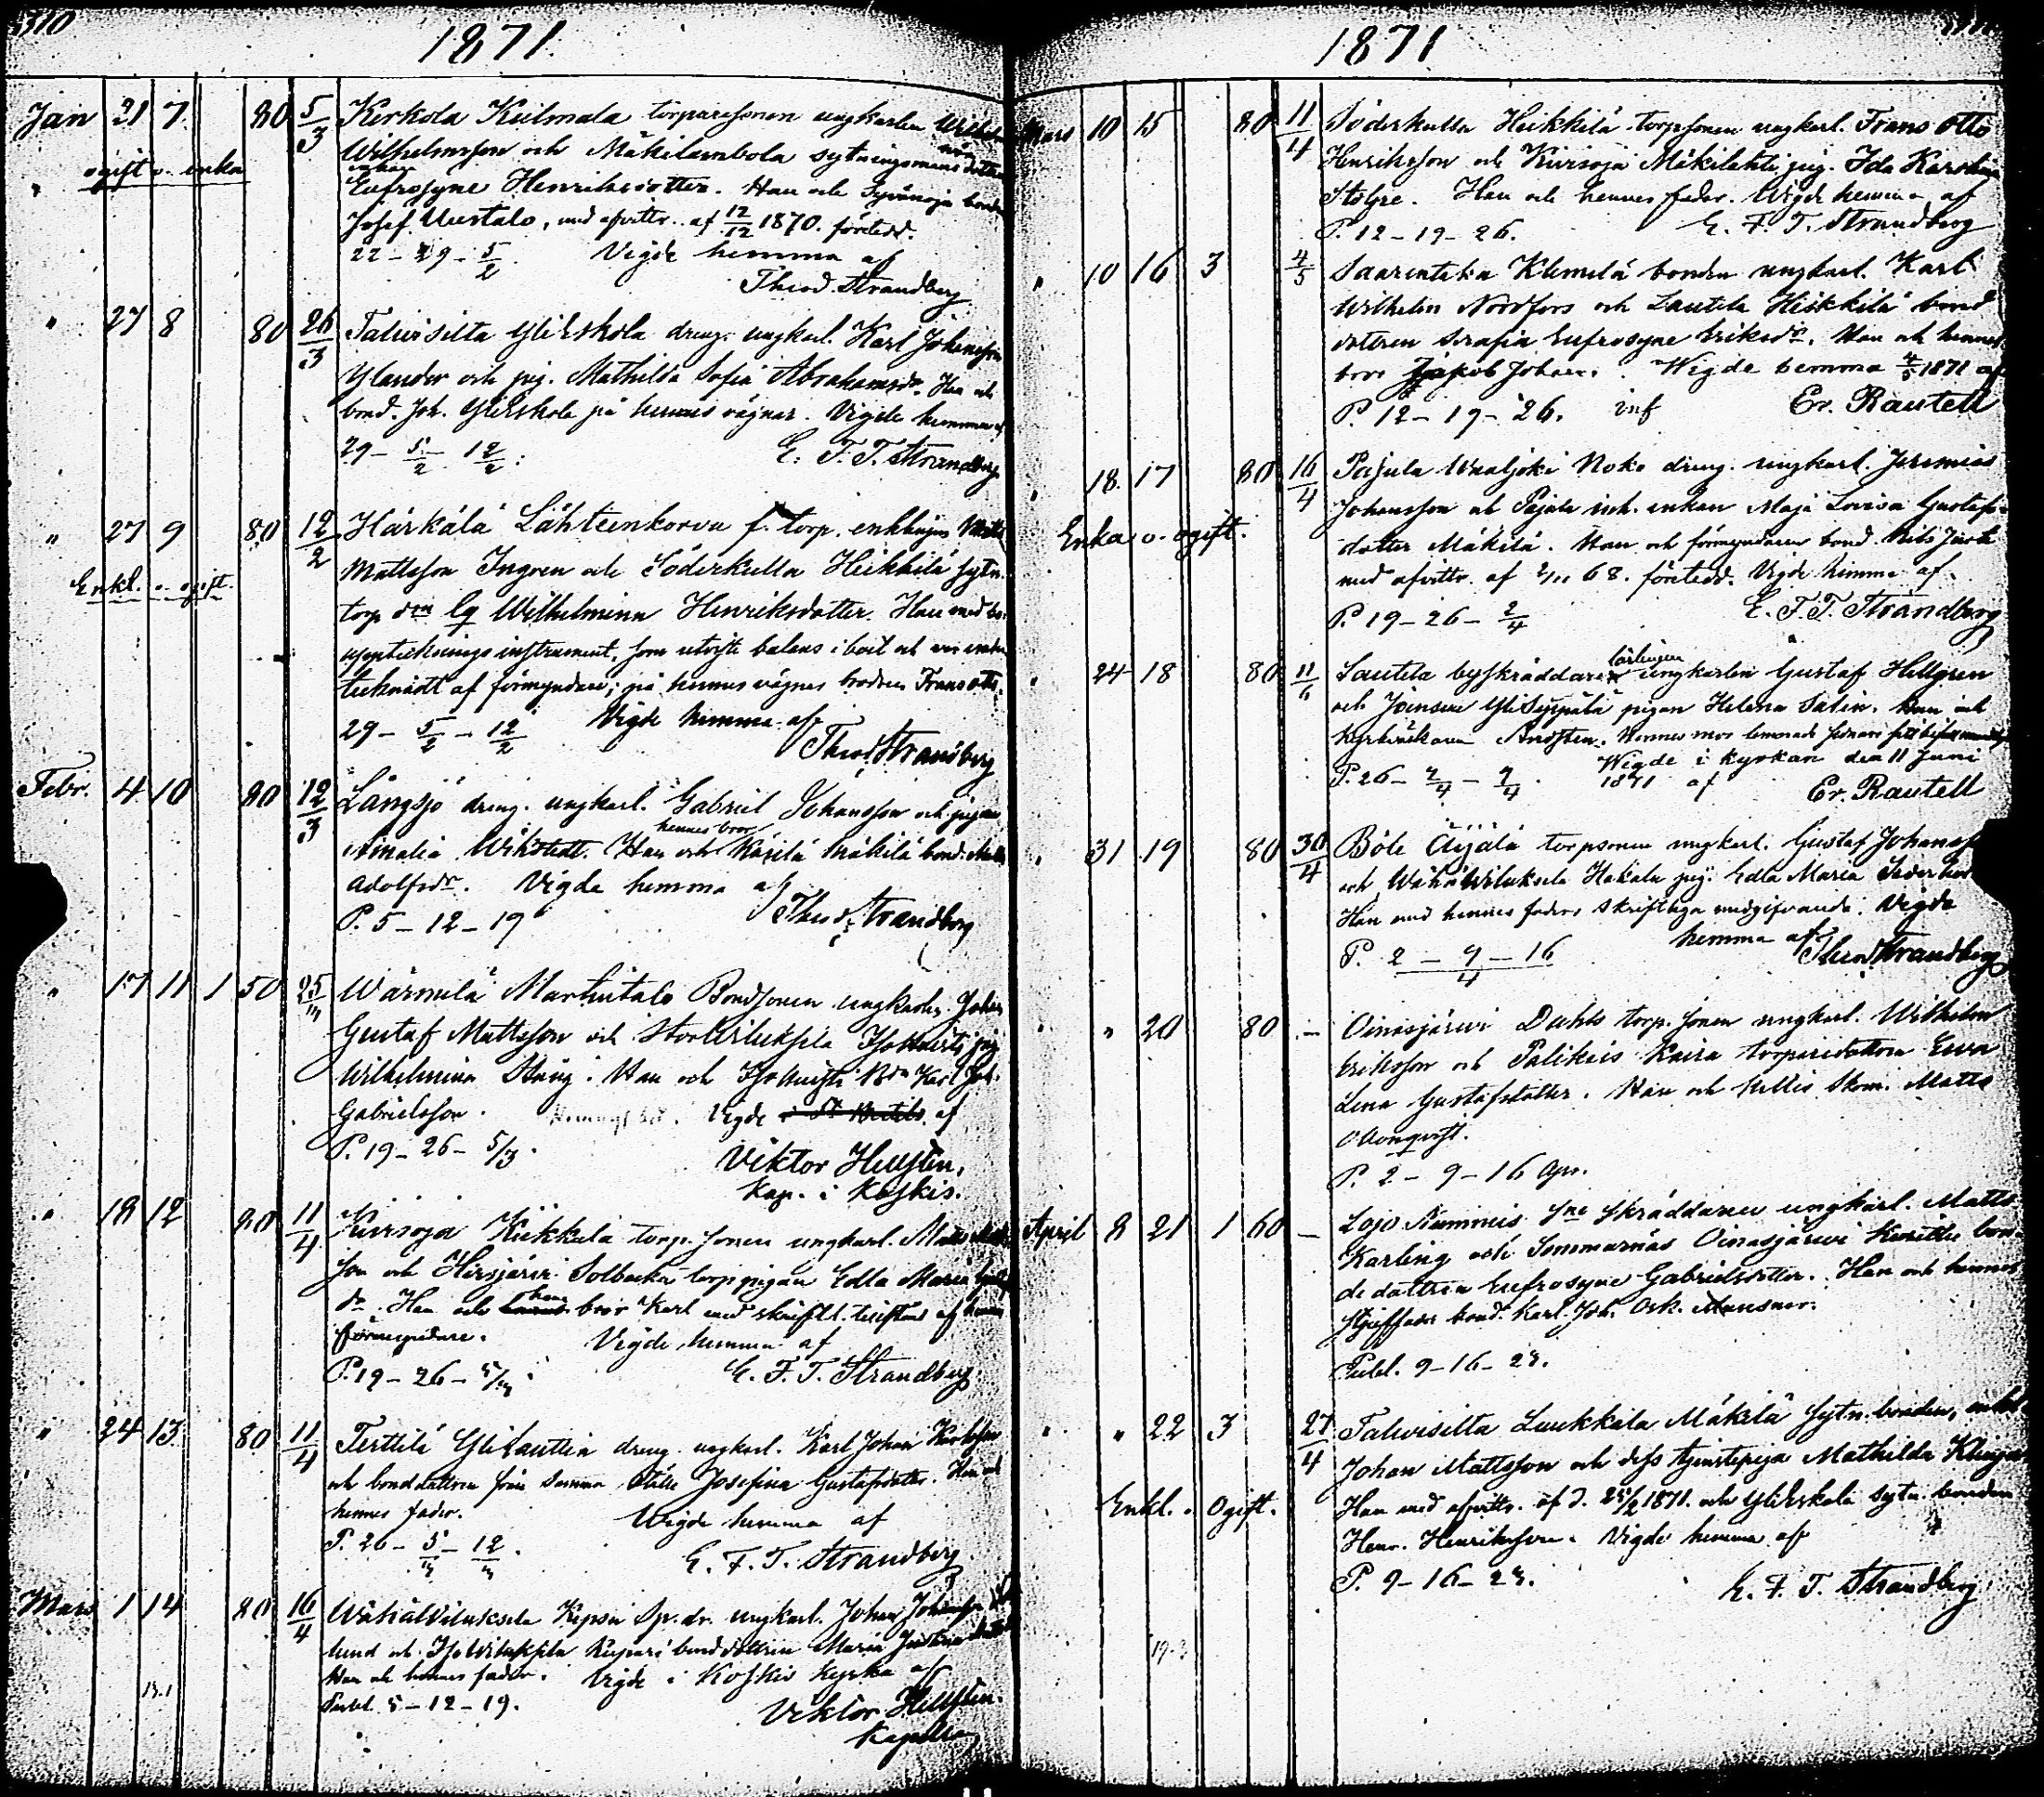 310
1871
Jan 21 7 80 5/3 Kerkola Keilmala torparesonen ungkarlen Wilhelm
ogift o. enka Wilhelmsson och Mäkilambola sytningsmans
enkan Eufrosyne Henriksdotter. Han och Syvänoja bonden
Josef Uustalo, med afvittr. af 12/12 1870. företedd.
22 - 29 - 5/2 Vigde hemma af
Theod. Strandberg
" 27 8 80 26/3 Talvisilta Yliskola dreng. ungkarl. Karl Johansson
Ylander och pig. Mathilda Sofia Abrahamsdr. Han och
bond. Joh. Yliskola på hennes vägnar. Vigde hemma af
29 - 5/2 12/2. E. F. T. Strandberg
" 27 9 80 12/2 Härkälä Lähteenkorva f. torp. enklingen Matts
Enkl. o. ogift. Mattsson Ingren och Söderkulla Heikkilä sytn.
torp drn Eg Wilhelmina Henriksdotter. Han med
uppteckningsinstrument, som utviste balans i boet och var
tecknadt af förmyndare; på hennes vägnar brodren Frans Otto.
29 - 5/2 - 12/2 Vigde hemma af
Theod. Strandberg
Febr. 4 10 80 12/3 Långsjö dreng. ungkarl. Gabriel Johansson och pigan
hennes bror
Amalia Wikstedt. Han och Käsilä Mäkilä bond.
Adolfsdr. Vigde hemma af
P. 5 - 12 - 19 Theod. Strandberg
" 17 11 1 50 25/3 Wärmilä Martintalo Bondsonen ungkarlen Johan
Gustaf Mattsson och Storwiluksela pig
Wilhelmina Stäng. Han och Karl Joh.
Gabrielsson. Vigde af
P. 19 - 26 - 5/3. Viktor Hellsten,
Kap. i Koskis.
" 18 12 80 11/4 Kivisoja Kiekkala torp. sonen ungkarl. Matts
son och Hirsjärvi Solbacka torppigan Edla Maria
dr. Han och hans bror Karl med skriftl. tillstånd af
förmyndare. Vigde hemma af
P. 19 - 26 - 5/3. E. F. T. Strandberg
" 24 13 80 11/4 Terttilä Ylilauttia dreng. ungkarl. Karl Johan Karlsson
och bonddottren från samma ställe Josefina Gustafsdotter. Han och
hennes fader. Vigde hemma af
P. 26 - 5/3 - 12/3. E. F. T. Strandberg
Mars 1 14 80 16/4 Wähäwiluksela Kipsi Sp. dr. ungkarl. Johan
lund och Isowiluksela bonddottren Maria Justina
Han och hennes fader. Vigde i Koskis kyrka af
13.1 Publ. 5 - 12 - 19. Viktor Hellsten.
Kapellan
1871
Mars 10 15 80 11/4 Söderkulla Heikkilä torpsonen ungkarl. Frans Otto
Henriksson och Kivisoja Mäkilähti pig. Ida Karolina
Stolpe. Han och hennes fader. Vigde hemma af
P. 12 - 19 - 26. E. F. T. Strandberg
" 10 16 3 4/5 Saarentaka Klemelä bonden ungkarl. Karl
Wilhelm Nordfors och Lautela Heikkilä bond
dottren Serafia Eufrosyne Eriksdr. Han och hennes
bror Jakob Johan. Wigde hemma 4/5 1871 af
P. 12 - 19 - 26. inf Er. Rautell
" 18. 17 80 16/4 Pajula Waaljoki Noko dreng. ungkarl. Jeremias
Enka o. ogift. Johansson och Pajula inh. enkan Maja Lovisa Gustafs
dotter Mäkilä. Han och förmyndaren bond. Nils
med afvittr. af 2/11 68. företedd. Vigde hemma af
P. 19 - 26 - 2/4 E. F. T. Strandberg
" 24 18 80 11/6 Lautela byskräddare lärlingen ungkarlen Gustaf Hellgren
och Joensuu Yliseppälä pigan Helena Salin. Han och
kyrkväktaren Hennes mor
Wigde i kyrkan den 11 Juni
P. 26 - 2/4 - 9/4. 1871 af Er. Rautell
" 31 19 80 30/4 Böle Äijälä torpsonen ungkarl. Gustaf Johansson
och Wähäwiluksela Hakala pig. Edla Maria
Han med hennes faders skriftliga medgifvande. Vigde
P. 2 - 9 - 16/4 hemma af Theod Strandberg
" " 20 80 - Oinasjärvi Dahls torp. sonen ungkarl. Wilhelm
Eriksson och Palikais Kaira torparedottren Eva
Lena Gustafsdotter. Han och
P. 2 - 9 - 16 Apr.
April 8 21 1 60 - Lojo Nummis Sne skräddaren ungkarl. Matts
Karling och Sommarnäs Oinasjärvi bon
de dottren Eufrosyne Gabrielsdotter. Han och hennes
styffader bond. Karl Joh. Osk.
Publ. 9 - 16 - 23.
" " 22 3 27/4 Talvisilta Luukkala Mäkilä sytn. bonden, enkl.
Johan Mattsson och dess tjenstepiga Mathilda
Enkl. o. Ogift. Han med afvittr. af d. 25/2 1871. och Yliskola sytn. bonden
Henr. Henriksson. Vigde hemma af
P. 9 - 16 - 23. E. F. T. Strandberg
19.3